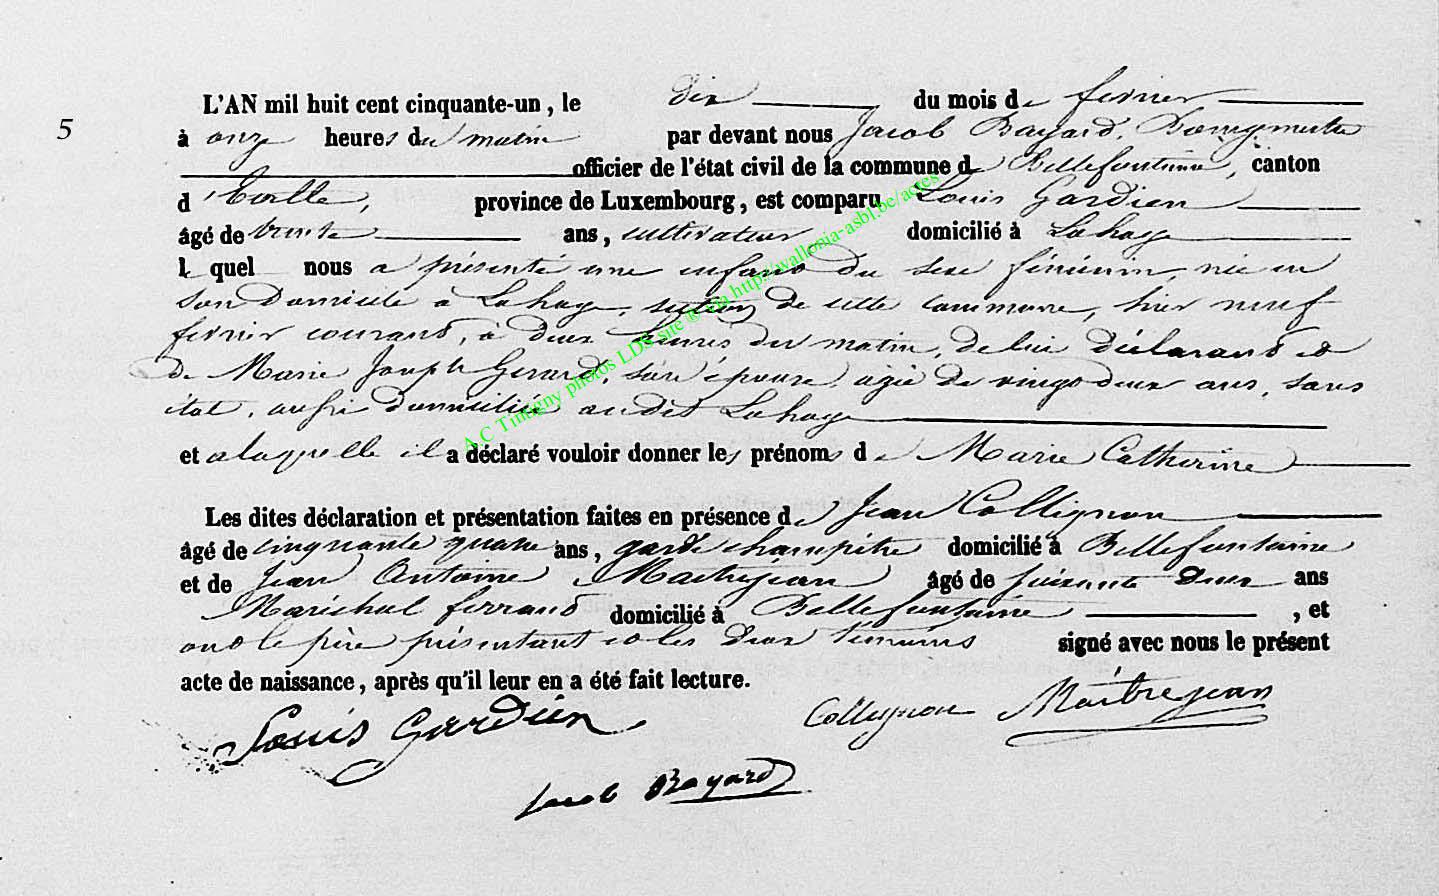 L'AN mil huit cent cinquante-un, le dix du mois de février
5
à onze heures du matin par devant nous Jacob Bayard, Bourgmestre
officier de l'état civil de la commune de Bellefontaine, canton
d'Etalle, province de Luxembourg, est comparu Louis Gardien
âgé de trente ans, cultivateur domicilié à Lahage
lequel nous a présenté une enfant du sexe féminin, née en
son domicile à Lahage, section de cette commune, hier neuf
février courant, à deux heures du matin, de lui déclarant et
de Marie Joseph Gerard, son épouse, agée de vingt deux ans, sans
état, aussi domiciliée audit Lahage
et a laquelle il a déclaré vouloir donner les prénoms de Marie Catherine
Les dites déclaration et présentation faites en présence de Jean Collignon
âgé de cinquante quatre ans, garde champêtre domicilié à Bellefontaine
et de Jean Antoine Maitrejean âgé de soixante deux ans
Maréchal ferrant domicilié à Bellefontaine, et
ont le père présentant et les deux témoins signé avec nous le présent
acte de naissance, après qu'il leur en a été fait lecture.
Louis Gardien Collignon Maitrejean
Jacob Bayard
A C Tintigny photos LDS site ® via http://wallonia-asbl.be/actes